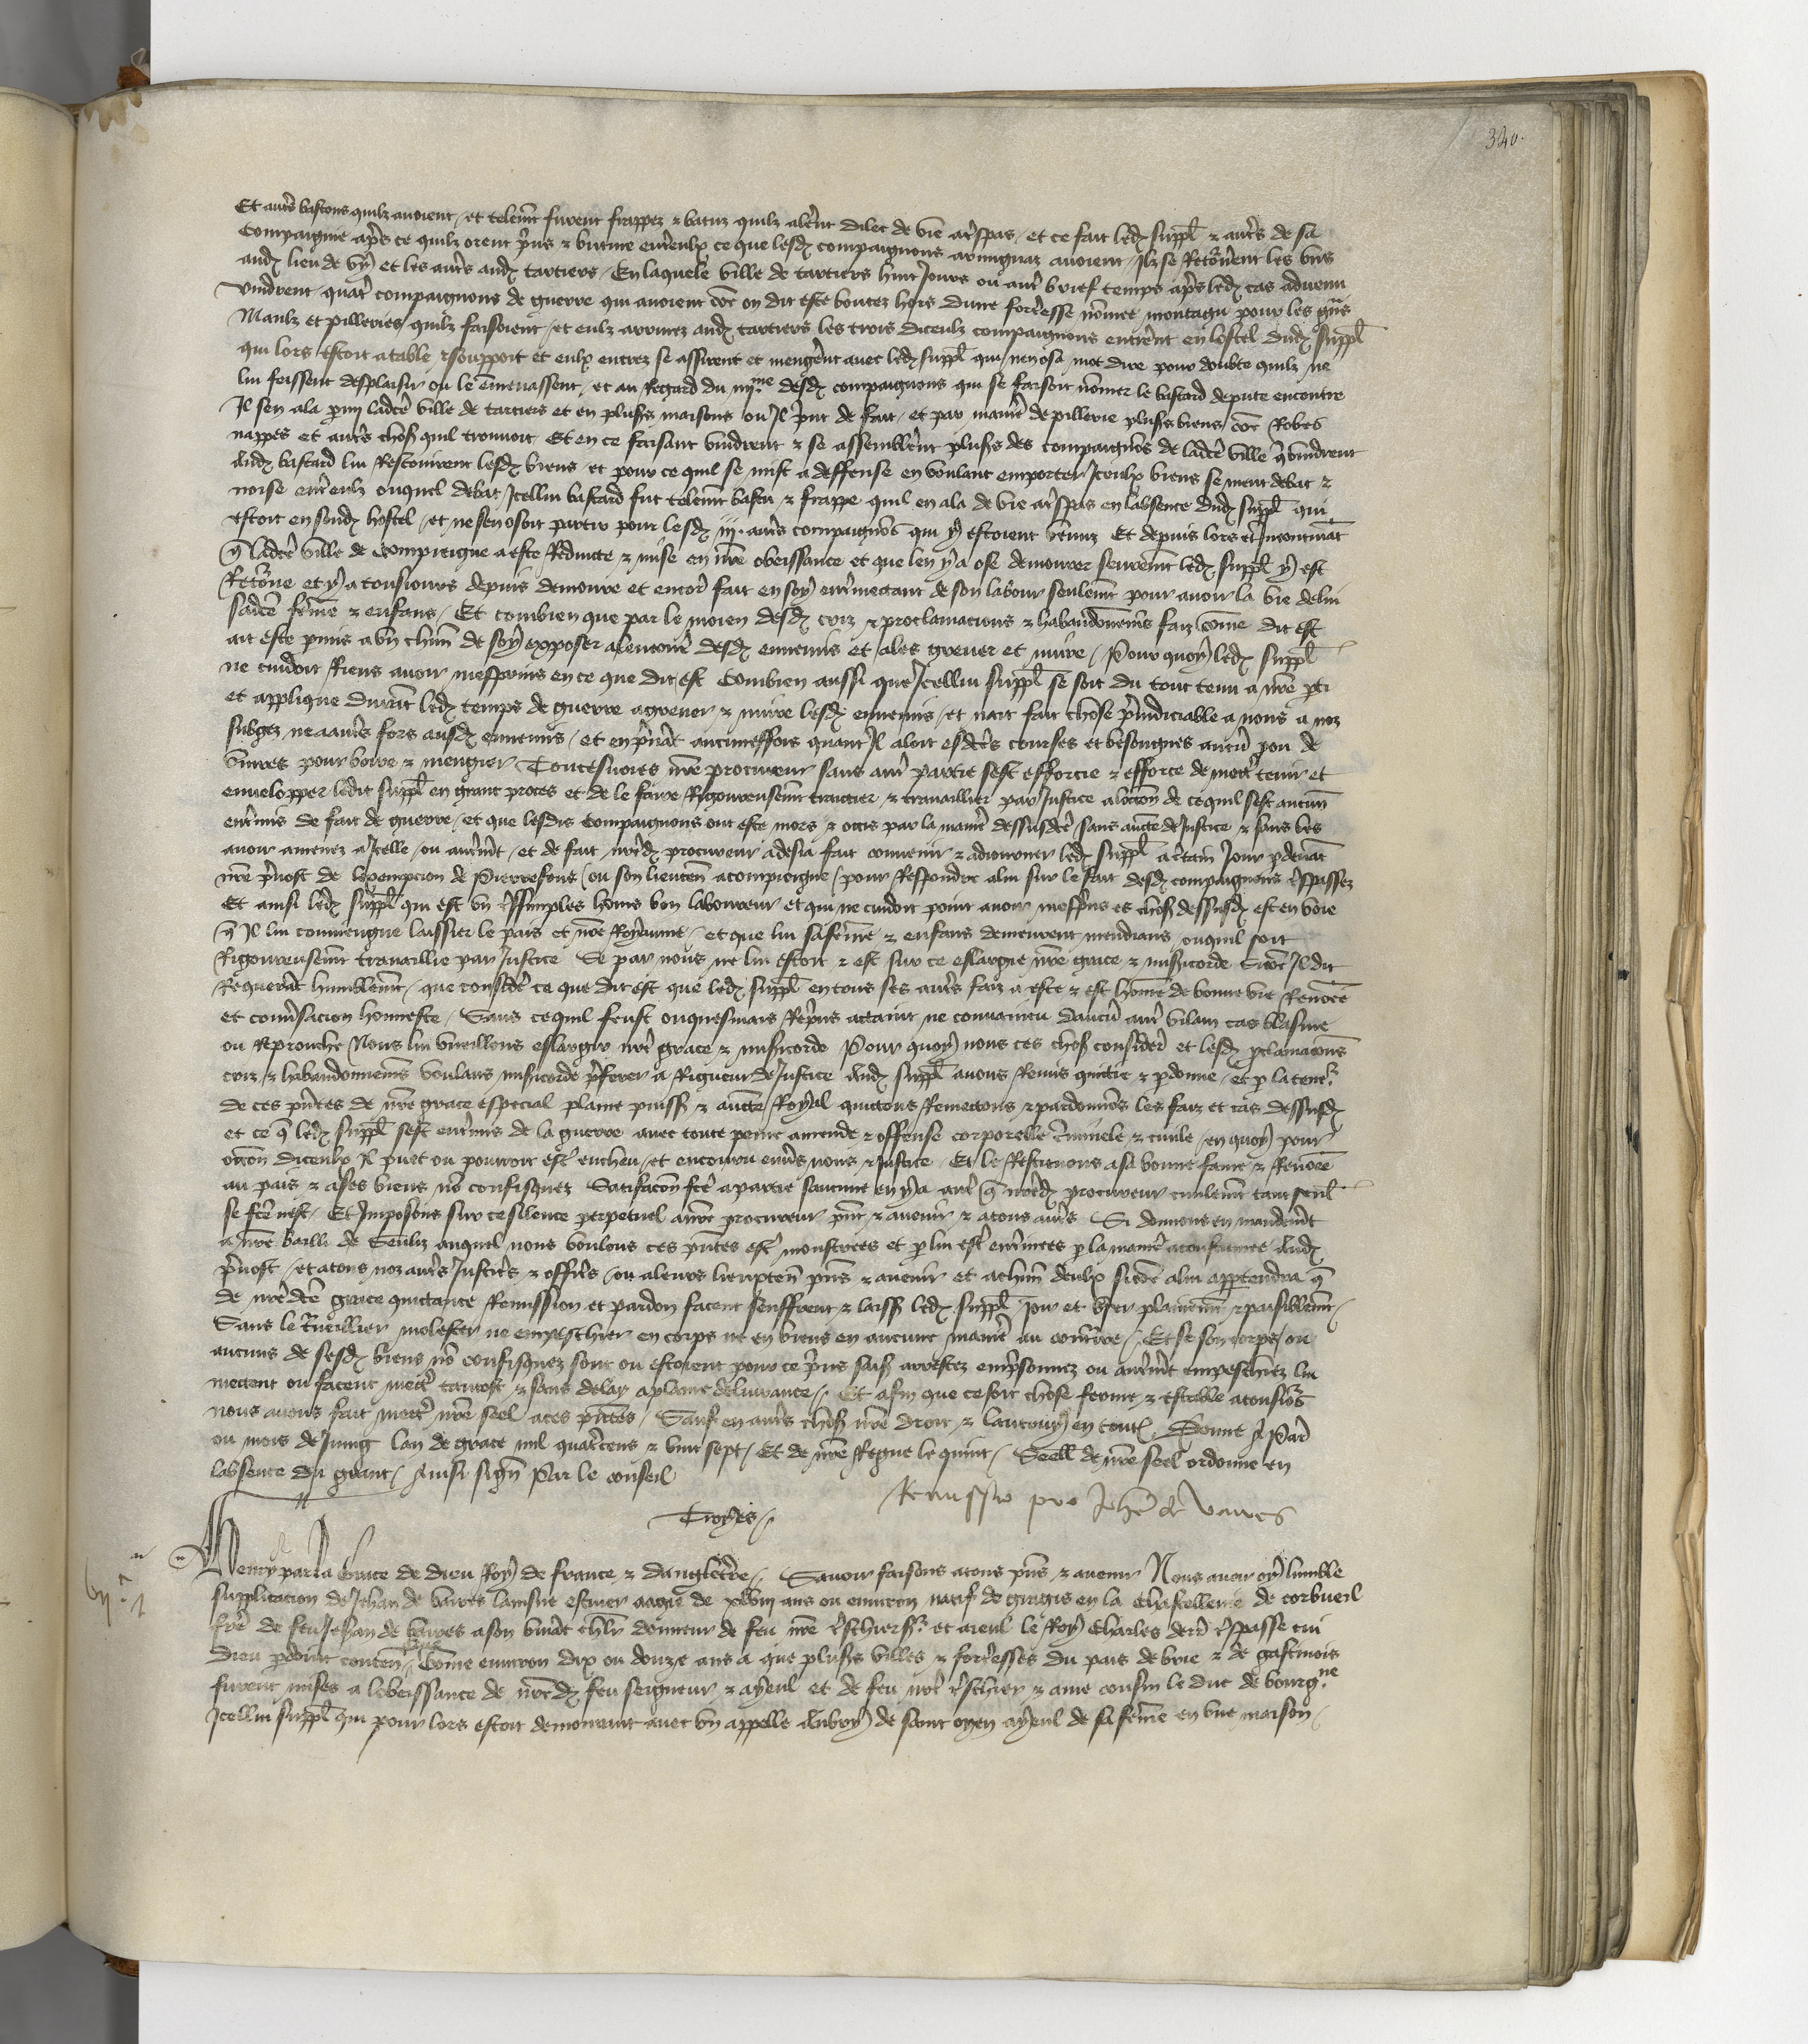 340.
Et autrs bastons quilz avoient / et telemt furent frappez & batuz quilz alert dilec de vie a trspas / et ce fait led suppl & autrs de sa
Compaignie aprs ce quilz orent prins & butine entreulx ce que lesd compaignons armignaz avoient / Ilz se Retornerent les uns
aud lieu de vy et les autrs aud tartiers / En laquele ville de tartiers huit Jours ou autr brief temps aprs led cas advenu
vindrent quatr compaignons de guerre qui avoient coe on dit este boutez hors dune forteresse nomee montagu pour les gns
Maulz et pilleries quilz faisoient / et eulz arrivez aud tartiers les trois diceulz compaignons entrerent en lostel dud suppl
qui lors estoit a table & souppoit et eulx entrez se assirent et mengerent avec led suppl qui nen osa mot dire pour doubte quilz ne
lui feissent desplaisir ou le emenassent / et au Regard du iiij.me desd compaignons qui se faisoit nomer le bastard depute encontre
Il sen ala parmy ladce ville de tartiers et en plusrs maisons ou Il print de fait / et par maniere de pillerie plusrs biens coe Robes
nappes et autrs choses quil trouvoit Et en ce faisant vindrent & se assemblerent plusrs des compaignons de ladce ville q vindrent
Aud bastard lui Rescouirent lesd biens / et pour ce quil se mist a deffense en voulant emporter Iceulx biens se meut debat &
noise entreulz ouquel debat Icellui bastard fut telemt batu & frappe quil en ala de vie a trspas en labsence dud suppl qui
estoit en sond hostel / et ne sen osoit partir pour lesd iij. autrs compaignons qui y estoient venuz Et depuis lors et Incontinat
q ladce ville de Compieigne a este Reducte & mise en nre obeissance et que len y a ose demourer seuremt led suppl y est
Retorne et y a tousiours depuis demoure et encor fait en soy entremetant de son labour seulemt pour avoir la vie de lui
sadce feme & enfans / Et combien que par le moien desd criz & proclamacions & habandonnemens faiz come dit est
ait este permis a un chun de soy exposer alencontre desd ennemis et ales grever et nuire / Pour quoy led suppl
ne cuidoit Riens avoir mesprins en ce que dit est Combien aussi que Icellui suppl se soit du tout tenu a nre prti
et applique durat led temps de guerre a grever & nuire lesd ennemis / et nait fait chose preiudiciable a nous a noz
subgez ne a autrs fors ausd ennemis / et en prenat aucuneffois quant Il aloit esdces courses et besongnes aucu pou de
vivres pour boire & mengier Toutesvoies nre procureur sans autr partie sest efforcie & efforce de mectr tenir et
envelopper ledit suppl en grant proces et de le faire Rigoureusemt traictier & travaillier par Justice a loccon de ce quil sest aucun
entremis de fait de guerre / et que lesdis Compaignons ont este mors & occis par la maniere dessusdce sans aucte de Justice & sans les
avoir amenez a Icelle ou autremt / et de fait nred procureur a desia fait convenir & adiourner led suppl a certain Jour pdevat
nre prevost de lexempcion de Pierrefons ou son lieuten a compieigne pour Respondre a lui sur le fait desd compaignons trspassez
Et ainsi led suppl qui est un trssimples homs bon laboureur et qui ne cuidoit point avoir mesprins es choses dessusd est en voie
q Il lui conviengne laissier le pais et nre Royaume / et que lui sa feme & enfans demeurent mendians ou quil soit
Rigoureusemt travaillie par Justice Se par nous ne lui estoit & est sur ce eslargie nre grace & misericorde Sicoe Il dit
Requerat humblemt / que consider ce que dit est que led suppl en tous ses autrs faiz a este & est home de bonne vie Renomee
et conversacion honneste / Sans ce quil feust onquesmais Reprins actaint ne convaincu daucu autr vilain cas blasme
ou Reprouche Nous lui vueillons eslargir nre grace & misericorde Pour quoy nous ces choses consider et lesd proclamacons
criz & habandonnemens voulans misericorde preferer a Rigueur de Justice Aud suppl avons Remis quictie & pdonne / et p la teneur
de ces prntes de nre grace especial plaine puiss & aucte Royal quictons Remectons & pardonnons les faiz et cas dessusd
et ce q led suppl sest entremis de la guerre avec toute peine amende & offense corporelle criminele & civile en quoy pour
occon diceulx Il puet ou pourroit estr encheu / et encouru envers nous & Justice Et le Restituons a sa bonne fame & Renomee
au pais & a ses biens no confisquez Satisfacon fce a partie saucune en y a autr q nred procureur civilemt tant seul
se fce nest / Et Imposons sur ce silence perpetuel a nre procureur prnt & avenir & a tous autrs Si donnons en mandemt
a nre bailli de Senliz auquel nous voulons ces prntes estr monstrees et p lui estr enterinees p la maniere acoustumee Aud
prevost / et a tous noz autrs Justicrs & officrs ou a leurs lieuxten prns & avenir et a chun deulx sicoe a lui appartendra q
de nre dce grace quictance Remission et pardon facent seuffrent & laiss led suppl Joir et user plainemt & paisiblemt /
Sans le travaillier molester ne empeschier en corps ne en biens en aucune maniere au contraire / Et se son corps ou
aucuns de sesd biens no confisquez sont ou estoient pour ce prins saisiz arrestez emprisonnez ou autremt empeschiez lui
mectent ou facent mectr tantost & sans delay a plaine delivrance / Et afin que ce soit chose ferme & estable a tousiors
nous avons fait mectr nre seel a ces prntes / Sauf en autrs choses nre droit & lautruy en toutes / Donne A Paris
ou mois de Juing lan de grace mil quatrcens & vint sept / Et de nre Regne le quint / Seell de nre seel ordonne en
labsence du grant / Ainsi sign Par le conseil
Troyes /
Remissio pro Johe de vaires
Henry par la Grace de dieu Roy de france & dangleterre / Savoir faisons a tous prns & avenir Nous avoir oy lumble
supplicacion de Jehan de vaires lainsne escuier aagie de xlviij ans ou environ natif de grigis en la Chastellenie de corbueil
frere de feu Jehan de vaires a son vivat chlr donneur de feu nre trschier sr et aieul le Roy Charles derr trspasse cui
dieu pdoint conten / Come environ dix ou douze ans a que plusrs villes & forteresses du pais de brie & de gastinois
furent mises a lobeissance de nred feu seigneur & ayeul et de feu nre trschier & ame cousin le duc de bourgne
Icellui suppl qui pour lors estoit demourant avec un appelle Aubry de saint oyen ayeul de sa feme en une maison /